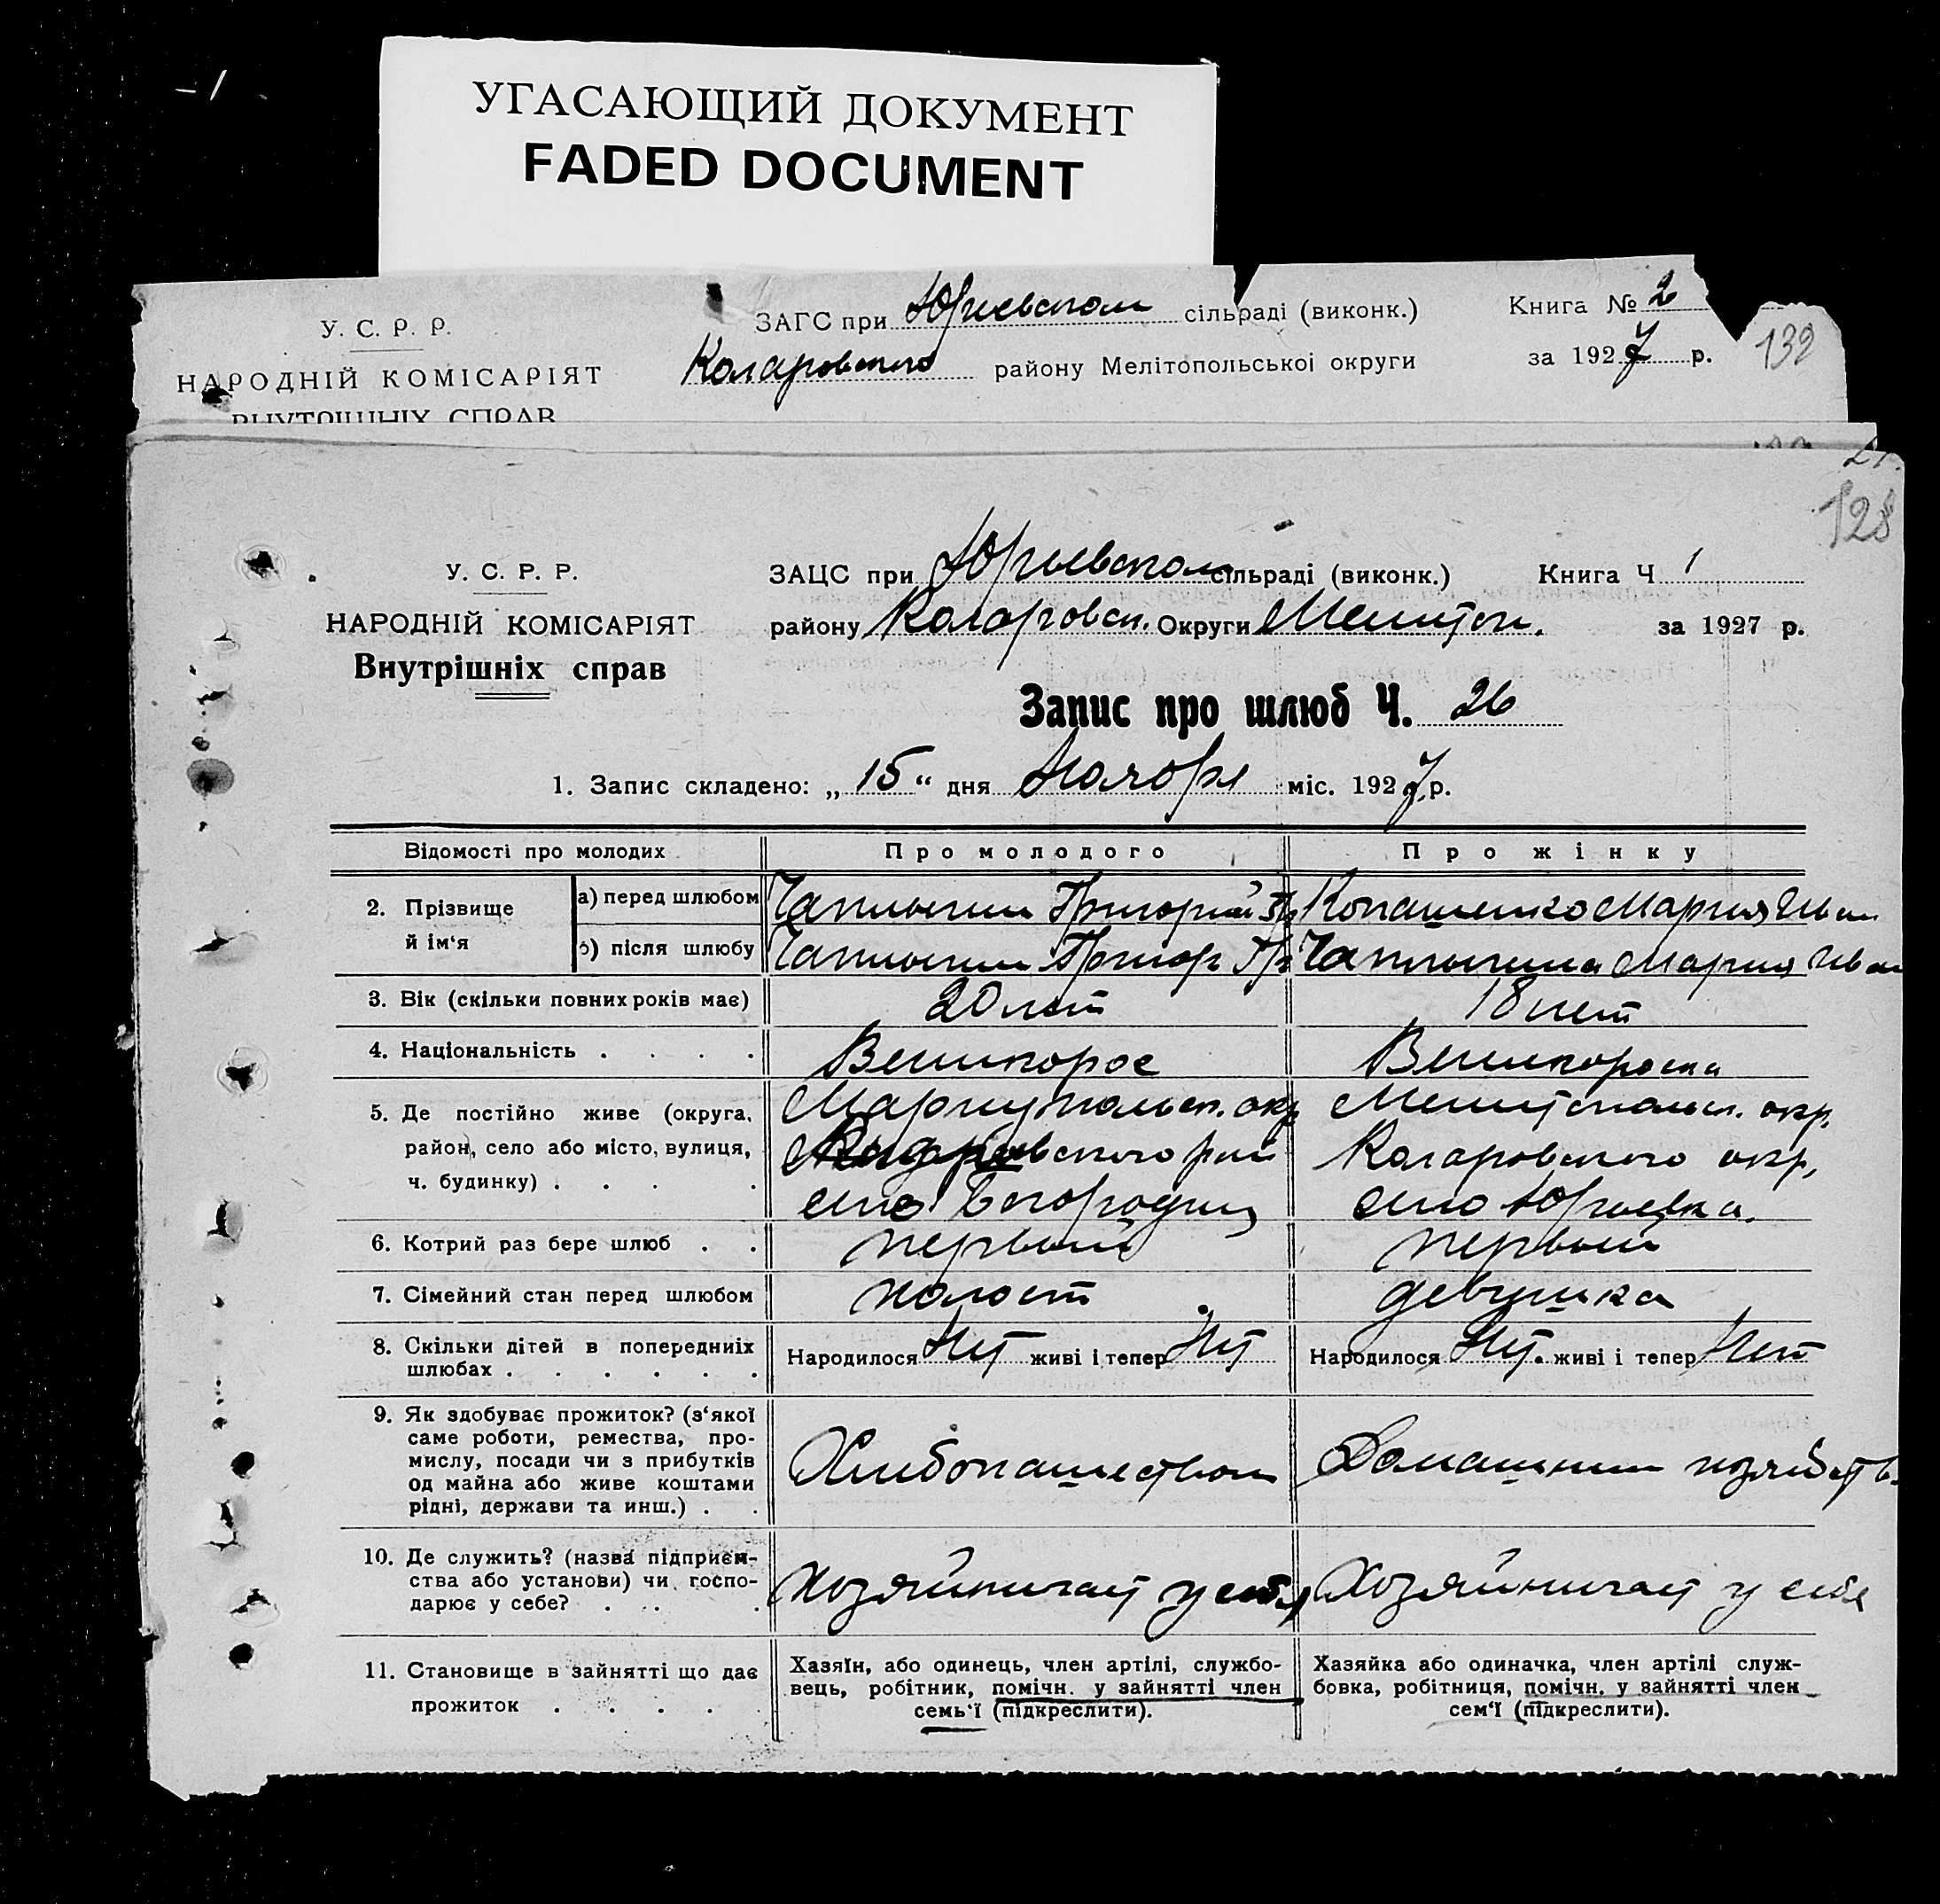 УГАСАЮЩИЙ ДОКУМЕНТ
FADED DOCUMENT
У. С. Р. Р.
НАРОДНІЙ КОМІСАРІЯТ
ВНУТРІШНІХ СПРАВ
ЗАГС при Юриевском сільраді (виконк.)
Коларовского району Мелітопольської округи
Книга № 2
за 1927 р.
132
128
У. С. Р. Р.
НАРОДНІЙ КОМІСАРІЯТ
Внутрішніх справ
ЗАЦС при Юрьевском сільраді (виконк.) Книга Ч 1
району Коларовск. Округи Мелитоп. за 1927 р.
Запис про шлюб Ч. 26
1. Запис складено: „ 15 “ дня Ноября міс. 1927 р.
Відомості про молодих Про молодого Про жінку
2. Прізвище й ім‘я
а) перед шлюбом Чаплыгин Григорий Гр Копашенко Мария Иван
б) після шлюбу Чаплыгин Григор Гр Чаплыгина Мария Иван
3. Вік (скільки повних років має) 20 лет 18 лет
4. Національність . . . . Великорос Великороска
5. Де постійно живе (округа,
район, село або місто, вулиця,
ч. будинку) . . . .
Мариупольск. окр
вского рай
село
Мелитопольск. окр.
Коларовского окр,
село Юрьевка.
6. Котрий раз бере шлюб . . первый первый
7. Сімейний стан перед шлюбом холост девушка
8. Скільки дітей в попередніх
шлюбах . . . . . .
Народилося Нет живі і тепер Нет Народилося Нет. живі і тепер Нет
9. Як здобуває прожиток? (з‘якої
саме роботи, ремества, про-
мислу, посади чи з прибутків
од майна або живе коштами
рідні, держави та инш.) . .
Хлебопашеством Домашним хозяйств.
10. Де служить? (назва підприєм-
ства або установи) чи госпо-
дарює у себе? . . .
Хозяйничает у себя Хозяйничает у себя
11. Становище в зайнятті що дає
прожиток . . . .
Хазяїн, або одинець, член артілі, службо-
вець, робітник, помічн. у зайнятті член
семь‘ї (підкреслити).
Хазяйка або одиначка, член артілі служ-
бовка, робітниця, помічн. у зайнятті член
сем‘ї (підкреслити).